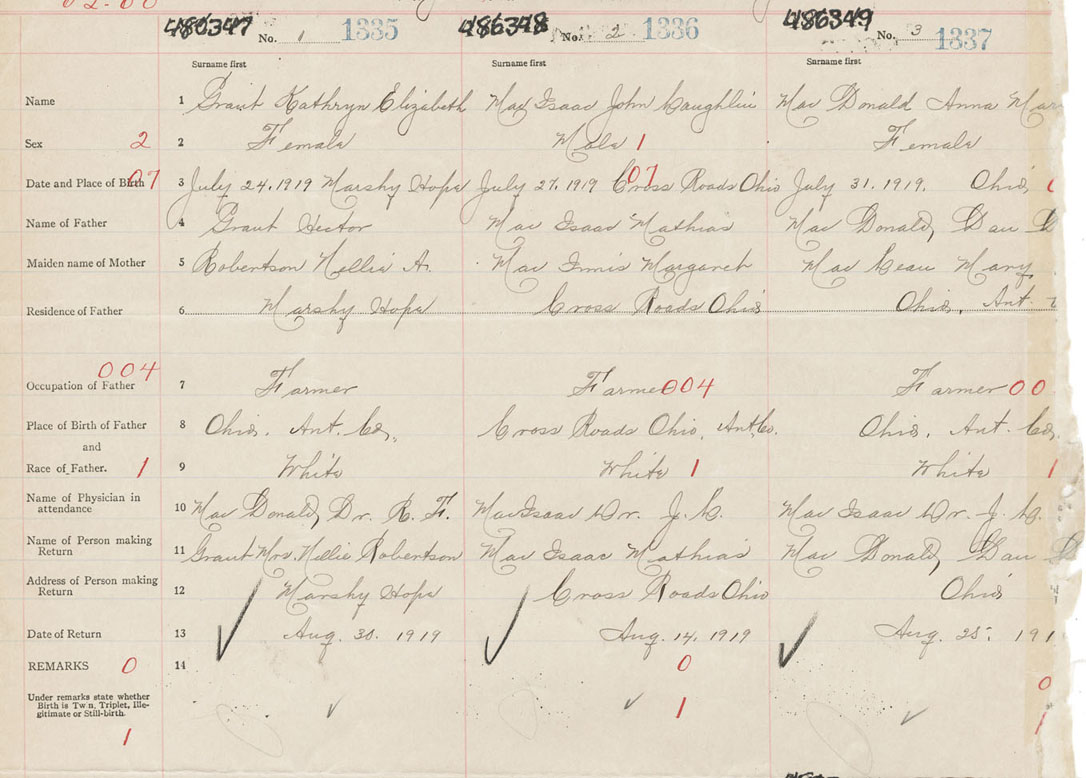 486347 No. 1 1335 486348 No. 2 1336 486349 No. 3 1337
Surname first Surname first Surname first
Name 1 Grant Kathryn Elizabeth Mac Isaac John Laughlin Mac Donald Anna Mar
Sex 2 2 Female Male 1 Female
Date and Place of Birth 07 3 July 24. 1919 Marshy Hope July 27. 1919 07 Cross Roads Ohio July 31. 1919. Ohio
Name of Father 4 Grant Hector Mac Isaac Mathias Mac Donald, Dan D
Maiden name of Mother 5 Robertson Nellie A. Mac Innis Margaret Mac Lean Mary
Residence of Father 6 Marshy Hope Cross Roads Ohio Ohio, Ant
004
Occupation of Father 7 Farmer Farmer 004 Farmer 00
Place of Birth of Father 8 Ohio. Ant. Co., Cross Roads Ohio, Ant. Co. Ohio. Ant. Co.
and
Race of Father. 1 9 White White 1 White 1
Name of Physician in
attendance 10 Mac Donald, Dr. R. F. MacIsaac Dr. J. L. Mac Isaac Dr. J. L.
Name of Person making
Return 11 Grant Mrs. Nellie Robertson Mac Isaac Mathias Mac Donald, Dan D
Address of Person making
Return 12 Marshy Hope Cross Roads Ohio Ohio
Date of Return 13 Aug. 30. 1919 Aug. 14, 1919 Aug. 25. 191
REMARKS 0 14 0
Under remarks state whether 0
Birth is Tw n, Triplet, Ille-
gitimate or Still-birth. 1 1
1